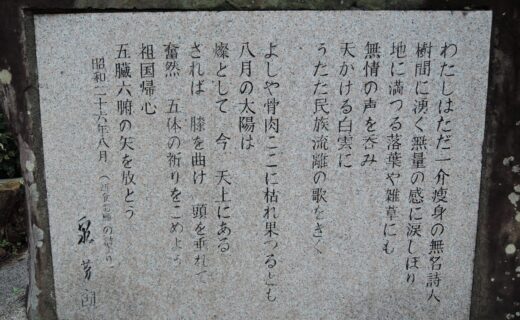 わたしはただ一介痩身の無名詩人
樹間に湧く無量の感に涙しぼり
地に満つる落葉や雑草にも
無情の声を呑み
天かける白雲に
うたた民族流離の歌をきく
よしや骨肉ここに枯れ果つるとも
八月の太陽は
燦として 今 天上にある
されば 膝を曲げ 頭を垂れて
奮然 五体の祈りをこめよう
祖国帰心
五臓六腑の矢を放とう
昭和二十六年八月
泉芳朗